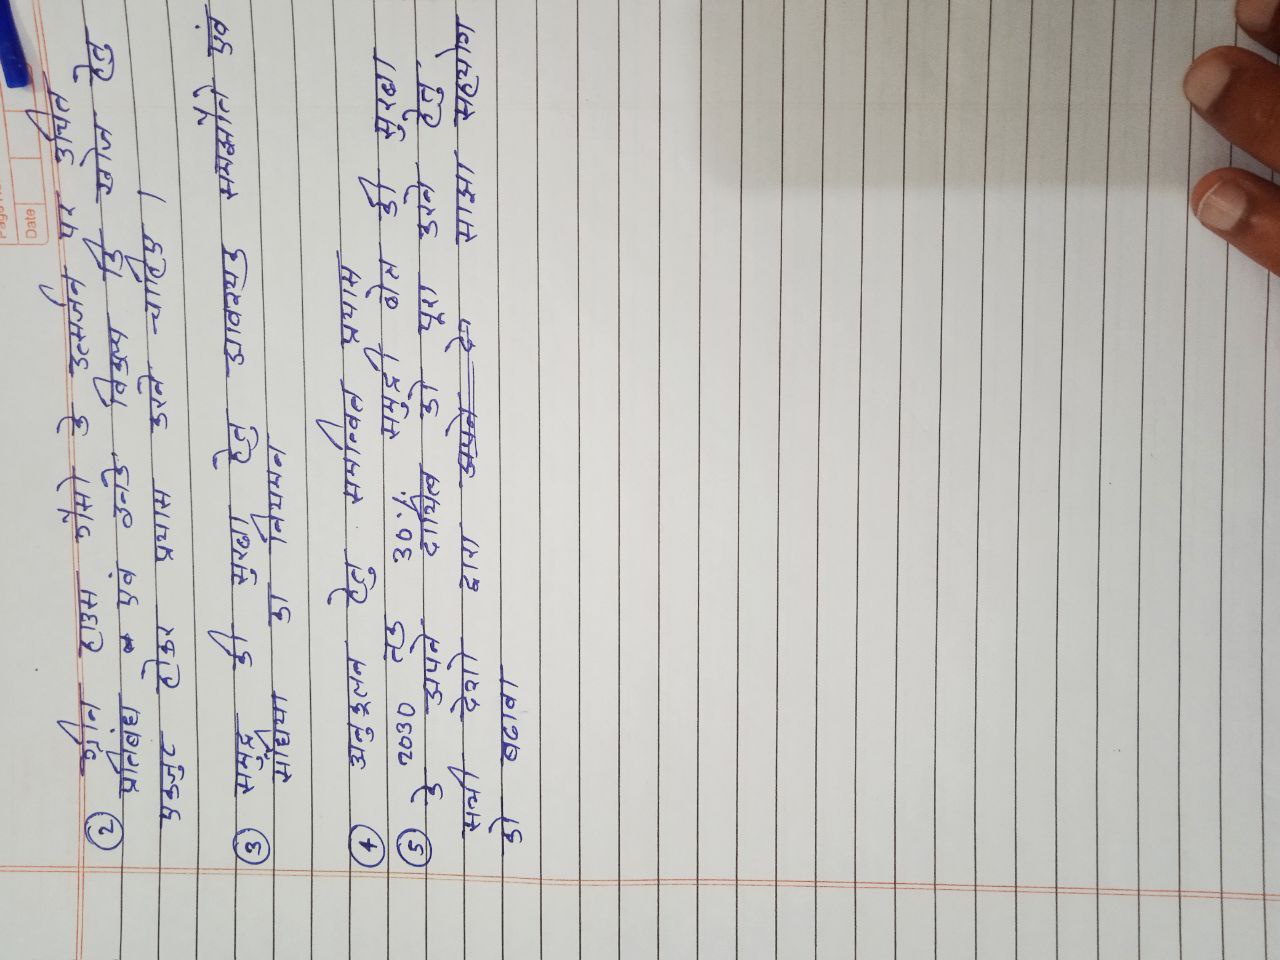 Page No.
Date
② ग्रीन हाउस गैसो के उत्सर्जन पर उचित
प्रतिबंध एवं उनके विकल्प कि खोज हेतु
एकजुट होकर प्रयास करने चाहिए ।
③ समुद्र की सुरक्षा हेतु आवश्यक समझौते एवं
संधियो का नियमन
④ अनुकूलन हेतु समन्वित प्रयास
⑤ 2030 तक 30% समुद्री क्षेत्र की सुरक्षा
के अपने दायित्व को पूरा करने हेतु
सभी देशो द्वारा साझा सहयोग
को बढावा